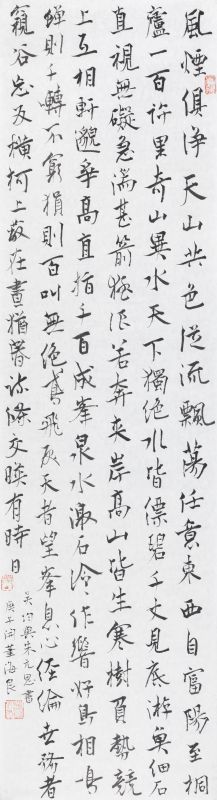 風煙俱淨天山共色從流飄蕩任意東西自富陽至桐
廬一百許里奇山異水天下獨絕水皆縹碧千丈見底游魚細石
直視無礙急湍甚箭猛浪若奔夾岸高山皆生寒樹負勢競
上互相軒邈爭高直指千百成峯泉水激石泠作響好鳥相鳴
蟬則千轉不窮猨則百叫無絕鳶飛戾天者望峯息心經綸世務者
窺谷忘反橫柯上蔽在晝猶昏疏條交暎有時日
吳均與朱元思書
庚子閏董海良